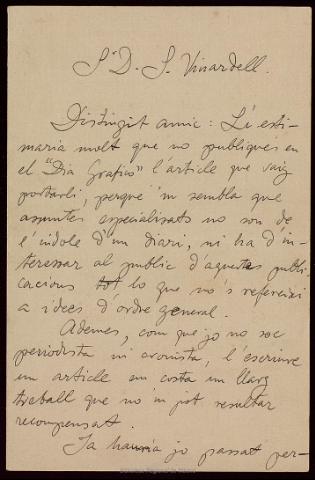 Sr D. S. Vinardell.
Distingit amic: Li esti-
maria molt que no publiqués en
el "Dia Gráfico" l'article que vaig
portarli, perqué 'm sembla que
assuntes especialisats no son de
l'índole d'un diari, ni ha d'in-
teressar al public d'aquetas publi-
cacions tot lo que no's refereixi
a idees d'ordre general.
Ademes, com que jo no soc
periodista ni cronista, l'escriure
un article em costa un llarg
treball que no m pot resultar
recompensat.
Ja hauria jo passat per-